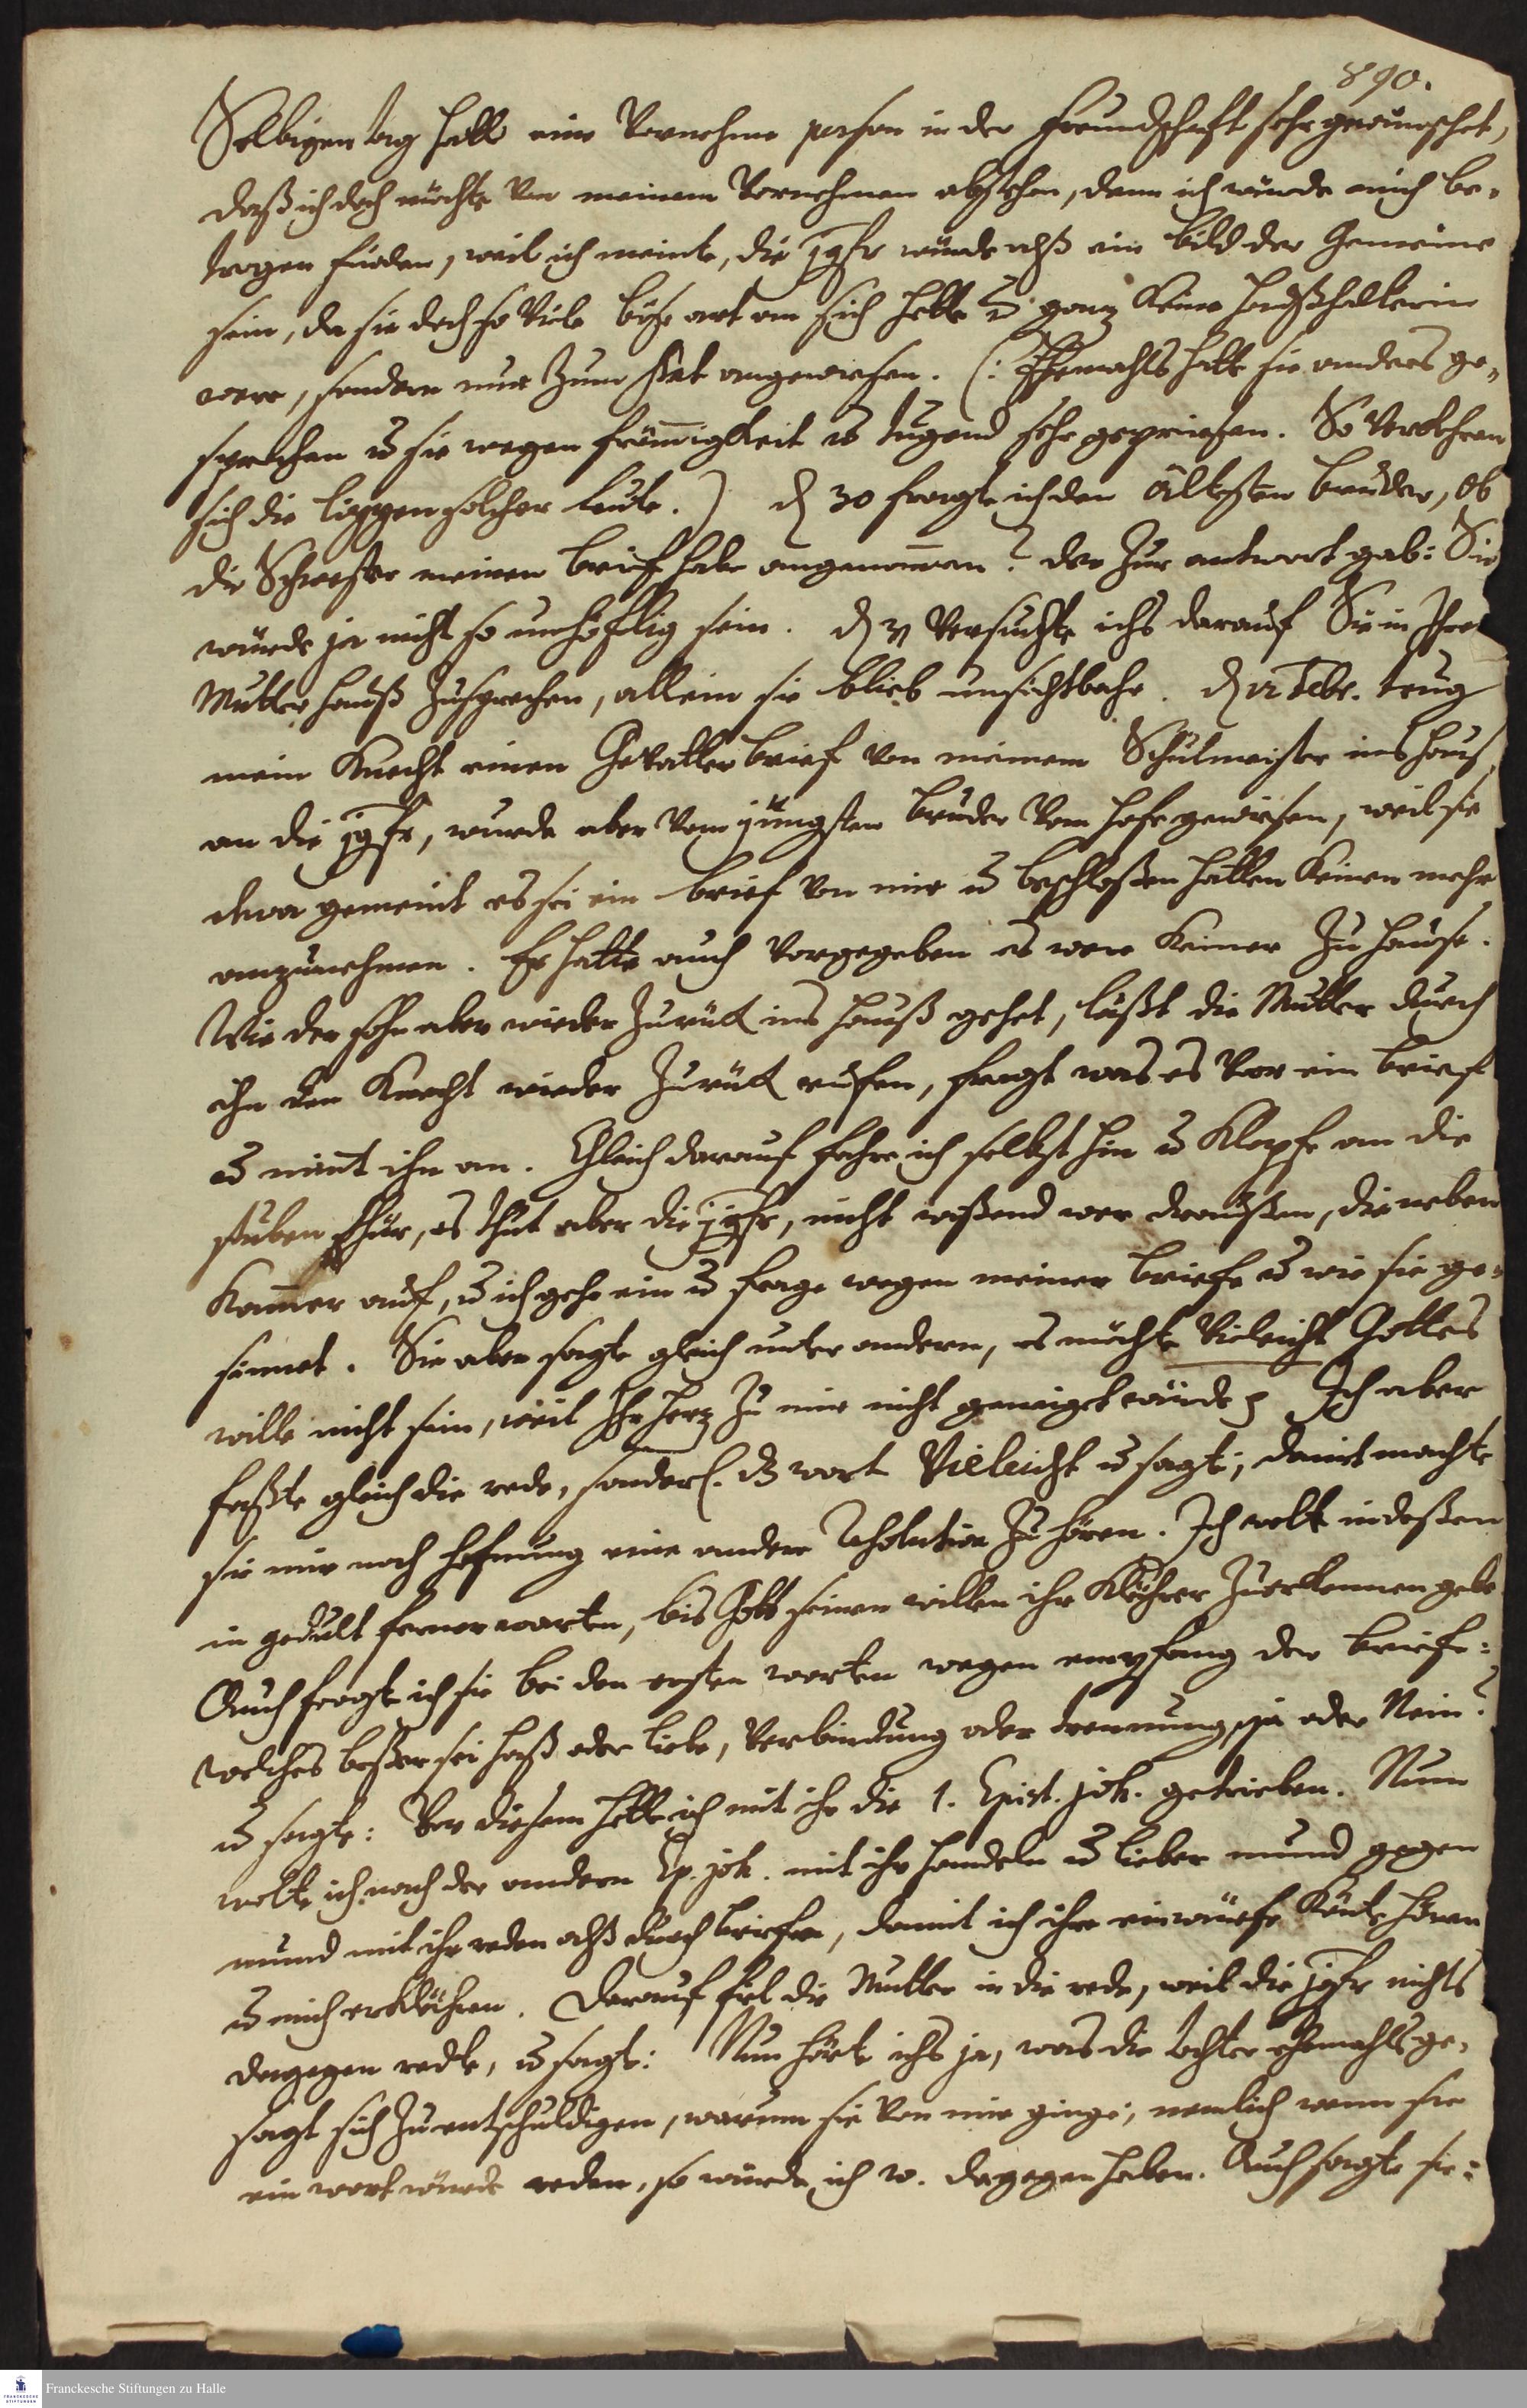 890.
Selbigen tag hatte eine Vornehme person in der freundschafft sehr gewünschet,
daß ich doch möchte von meinem Vornehmen abstehen, denn ich würde mich be-
trogen finden, weil ich meinte, die jgfr würde alß ein bild der Gemeine
sein, da sie doch so viele böse art an sich hette u ganz keine haußhalterin
were, sondern nur zum staat angewiesen. (: Ehemahls hatte sie anders ge-
sprochen u sie wegen frömigkeit u tugend sehr gepriesen. So verkehren
sich die lippen solcher leute.) d 30 fragte ich den ältesten bruder, ob
die Schwester meinen brief habe angenomen? der zur antwort gab: Sie
würde ja nicht so unhöflig sein. d 31 versuchte ichs darauf Sie in Ihrer
Mutter hauß zusprechen, allein sie blieb unsichtbahr. d 12 Febr. trug
mein Knecht einen Gevatter brief von meinem Schulmeister ins hauß
an die jgfr, wurde aber vom jüngsten bruder vom hofe gewiesen, weil sie
etwa gemeint es sei ein brief von mir u beschloßen hatten keinen mehr
anzunehmen. Er hatte auch vorgegeben es were keiner zu hause.
Wie der sohn aber wieder zurük ins hauß gehet, läßt die Mutter durch
ihn den Knecht wieder zurük rufen, fragt was es vor ein brief
u nimt ihn an. Gleich darauf fahre ich selbst hin u klopfe an die
stuben thür, es thut aber die jgfr, nicht wißend wer draußen, die neben
Kamer auf, u ich gehe ein u frage wegen meiner briefe u wie sie ge-
sinnet. Sie aber sagte gleich unter andern, es möchte vieleicht Gottes
wille nicht sein, weil Ihr herz zu mir nicht geneiget würde Ich aber
faßte gleich die rede, sonderl. dz wort Vieleicht u sagte; damit machte
sie mir noch hofnung eine andere Resolution zu hören. Ich wolte indeßen
in gedult ferner warten, bis Gott seinen willen ihr klährer zuerkennen gebe
Auch fragte ich sie bei den ersten worten wegen empfang der briefe:
welches beßer sei haß oder liebe, verbindung oder trennung, ja oder Nein?
u sagte: Vor diesem hette ich mit ihr die 1. Epist. joh. getrieben. Nun
wolte ich nach der andern Ep. joh. mit ihr handeln u lieber mund gegen
mund mit ihr reden alß durch briefe, damit ich ihre einwürfe könte hören
u mich erklähren. Darauf fiel die Mutter in die rede, weil die jgfr nichts
dagegen redte, u sagte: Nun hörte ichs ja, was die tochter ehemahls ge-
sagt sich zu entschuldigen, warum sie von mir ginge, nemlich wenn sie
ein wort würde reden, so würde ich 10. dagegen haben. Auch sagte sie:
Franckesche Stiftungen zu Halle